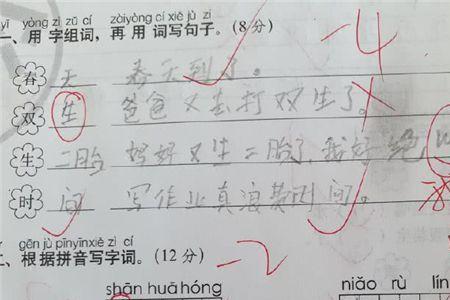 yī yòng zì zǔ cí zàiyòng cí xiě jù zi
一、用字组词，再用词写句子。(8分)
-4
春 天 春天到了。
双 生 爸爸又去打双生了。
生 二胎 妈妈又生二胎了，我好绝
时 间 写作业真浪费时间。
gēn jù pīnyīnxiě zì cí
二、根据拼音写字词。(12分) -2
shān huā hóng niǎo rù lín